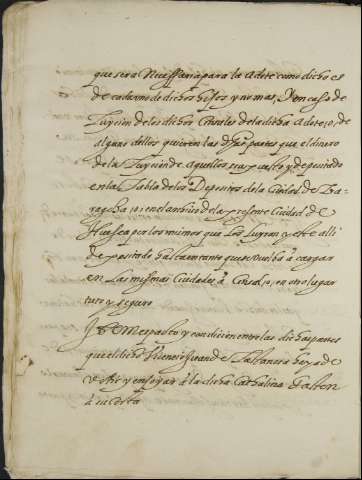 que sera Necessaria para la dote como dicho es
de cada uno de dichos hijos y no mas, Y en caso de
luycion de los dichos Censales de la dicha Adote, o, de
alguno dellos quieren las dichas partes que el dinero
de la luycion de aquellos sea puesto y depositado
en la Tabla de los Depositos de la Ciudad de Çara-
goça, o, en el cambio de la presente Ciudad de
Huesca por los mismos que los luyran y este alli
depositado hasta en tanto que se vuelba a cargar
en Las mismas Ciudades o Censal, o, en otro lugar
tuto y seguro
Item es pacto y condicion entre las dichas partes
que el dicho Juan de haya de
vestir y enjoyar a la dicha Cathalina
a su costa